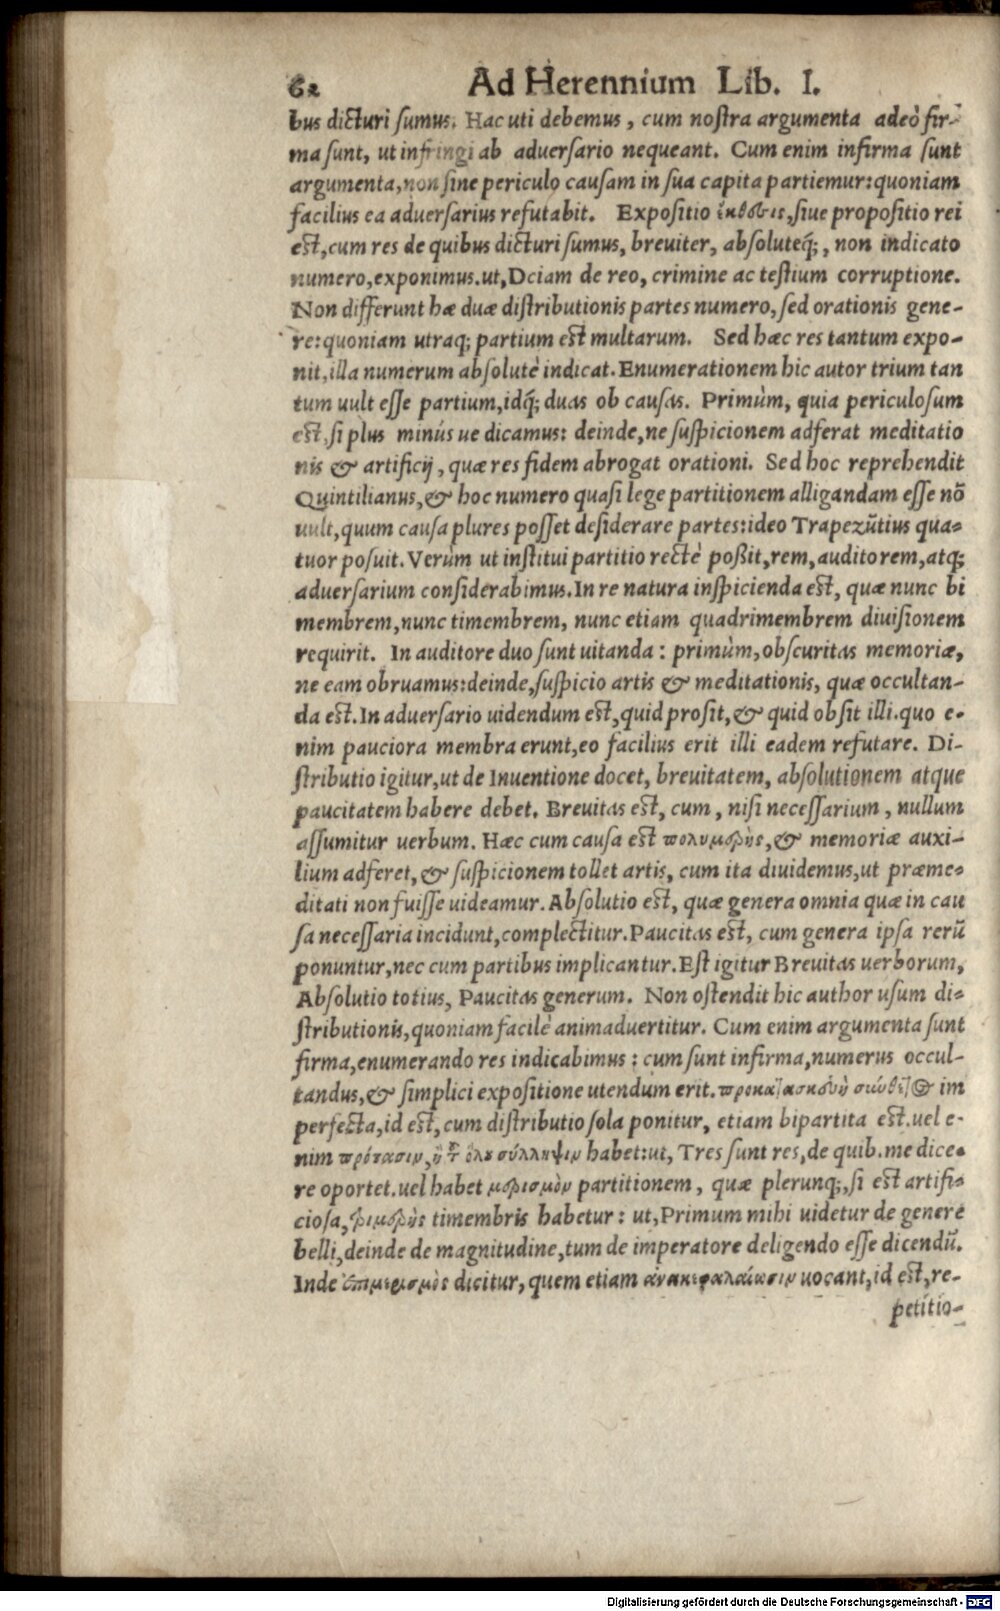 62 Ad Herennium Lib. I.
bus dicturi sumus. Hac uti debemus, cum nostra argumenta adeò fir-
ma sunt, ut infringi ab aduersario nequeant. Cum enim infirma sunt
argumenta, non sine periculo causam in sua capita partiemur: quoniam
facilius ea aduersarius refutabit. Expositio ἔκθεσις, siue propositio rei
est, cum res de quibus dicturi sumus, breuiter, absoluteq́;, non indicato
numero, exponimus. ut, Dciam de reo, crimine ac testium corruptione.
Non differunt hæ duæ distributionis partes numero, sed orationis gene-
re: quoniam utraq; partium est multarum. Sed hæc res tantum expo-
nit, illa numerum absolutè indicat. Enumerationem hic autor trium tan
tum uult esse partium, idq́; duas ob causas. Primùm, quia periculosum
est, si plus minús ue dicamus: deinde, ne suspicionem adferat meditatio
nis & artificij, quæ res fidem abrogat orationi. Sed hoc reprehendit
Quintilianus, & hoc numero quasi lege partitionem alligandam esse nõ
uult, quum causa plures posset desiderare partes: ideo Trapezũtius qua-
tuor posuit. Verùm ut institui partitio rectè poßit, rem, auditorem, atq;
aduersarium considerabimus. In re natura inspicienda est, quæ nunc bi
membrem, nunc timembrem, nunc etiam quadrimembrem diuisionem
requirit. In auditore duo sunt uitanda: primùm, obscuritas memoriæ,
ne eam obruamus: deinde, suspicio artis & meditationis, quæ occultan-
da est. In aduersario uidendum est, quid prosit, & quid obsit illi. quo e-
nim pauciora membra erunt, eo facilius erit illi eadem refutare. Di-
stributio igitur, ut de Inuentione docet, breuitatem, absolutionem atque
paucitatem habere debet. Breuitas est, cum, nisi necessarium, nullum
assumitur uerbum. Hæc cum causa est πολυμερὴς, & memoriæ auxi-
lium adferet, & suspicionem tollet artis, cum ita diuidemus, ut præme-
ditati non fuisse uideamur. Absolutio est, quæ genera omnia quæ in cau
sa necessaria incidunt, complectitur. Paucitas est, cum genera ipsa rerũ
ponuntur, nec cum partibus implicantur. Est igitur Breuitas uerborum,
Absolutio totius, Paucitas generum. Non ostendit hic author usum di-
stributionis, quoniam facilè animaduertitur. Cum enim argumenta sunt
firma, enumerando res indicabimus: cum sunt infirma, numerus occul-
tandus, & simplici expositione utendum erit. im
perfecta, id est, cum distributio sola ponitur, etiam bipartita est. uel e-
nim πρότασιν, ἢ τ ὅλου σύλληψιν habet: ut, Tres sunt res, de quib. me dice-
re oportet. uel habet μερισμὸν partitionem, quæ plerunq;, si est artifi-
ciosa, τριμερὴς timembris habetur: ut, Primum mihi uidetur de genere
belli, deinde de magnitudine, tum de imperatore deligendo esse dicendũ.
Inde ἐπιμερισμὸς dicitur, quem etiam ἀνακεφαλαίωσιν uocant, id est, re-
petitio-
Digitalisierung gefördert durch die Deutsche Forschungsgemeinschaft - DFG